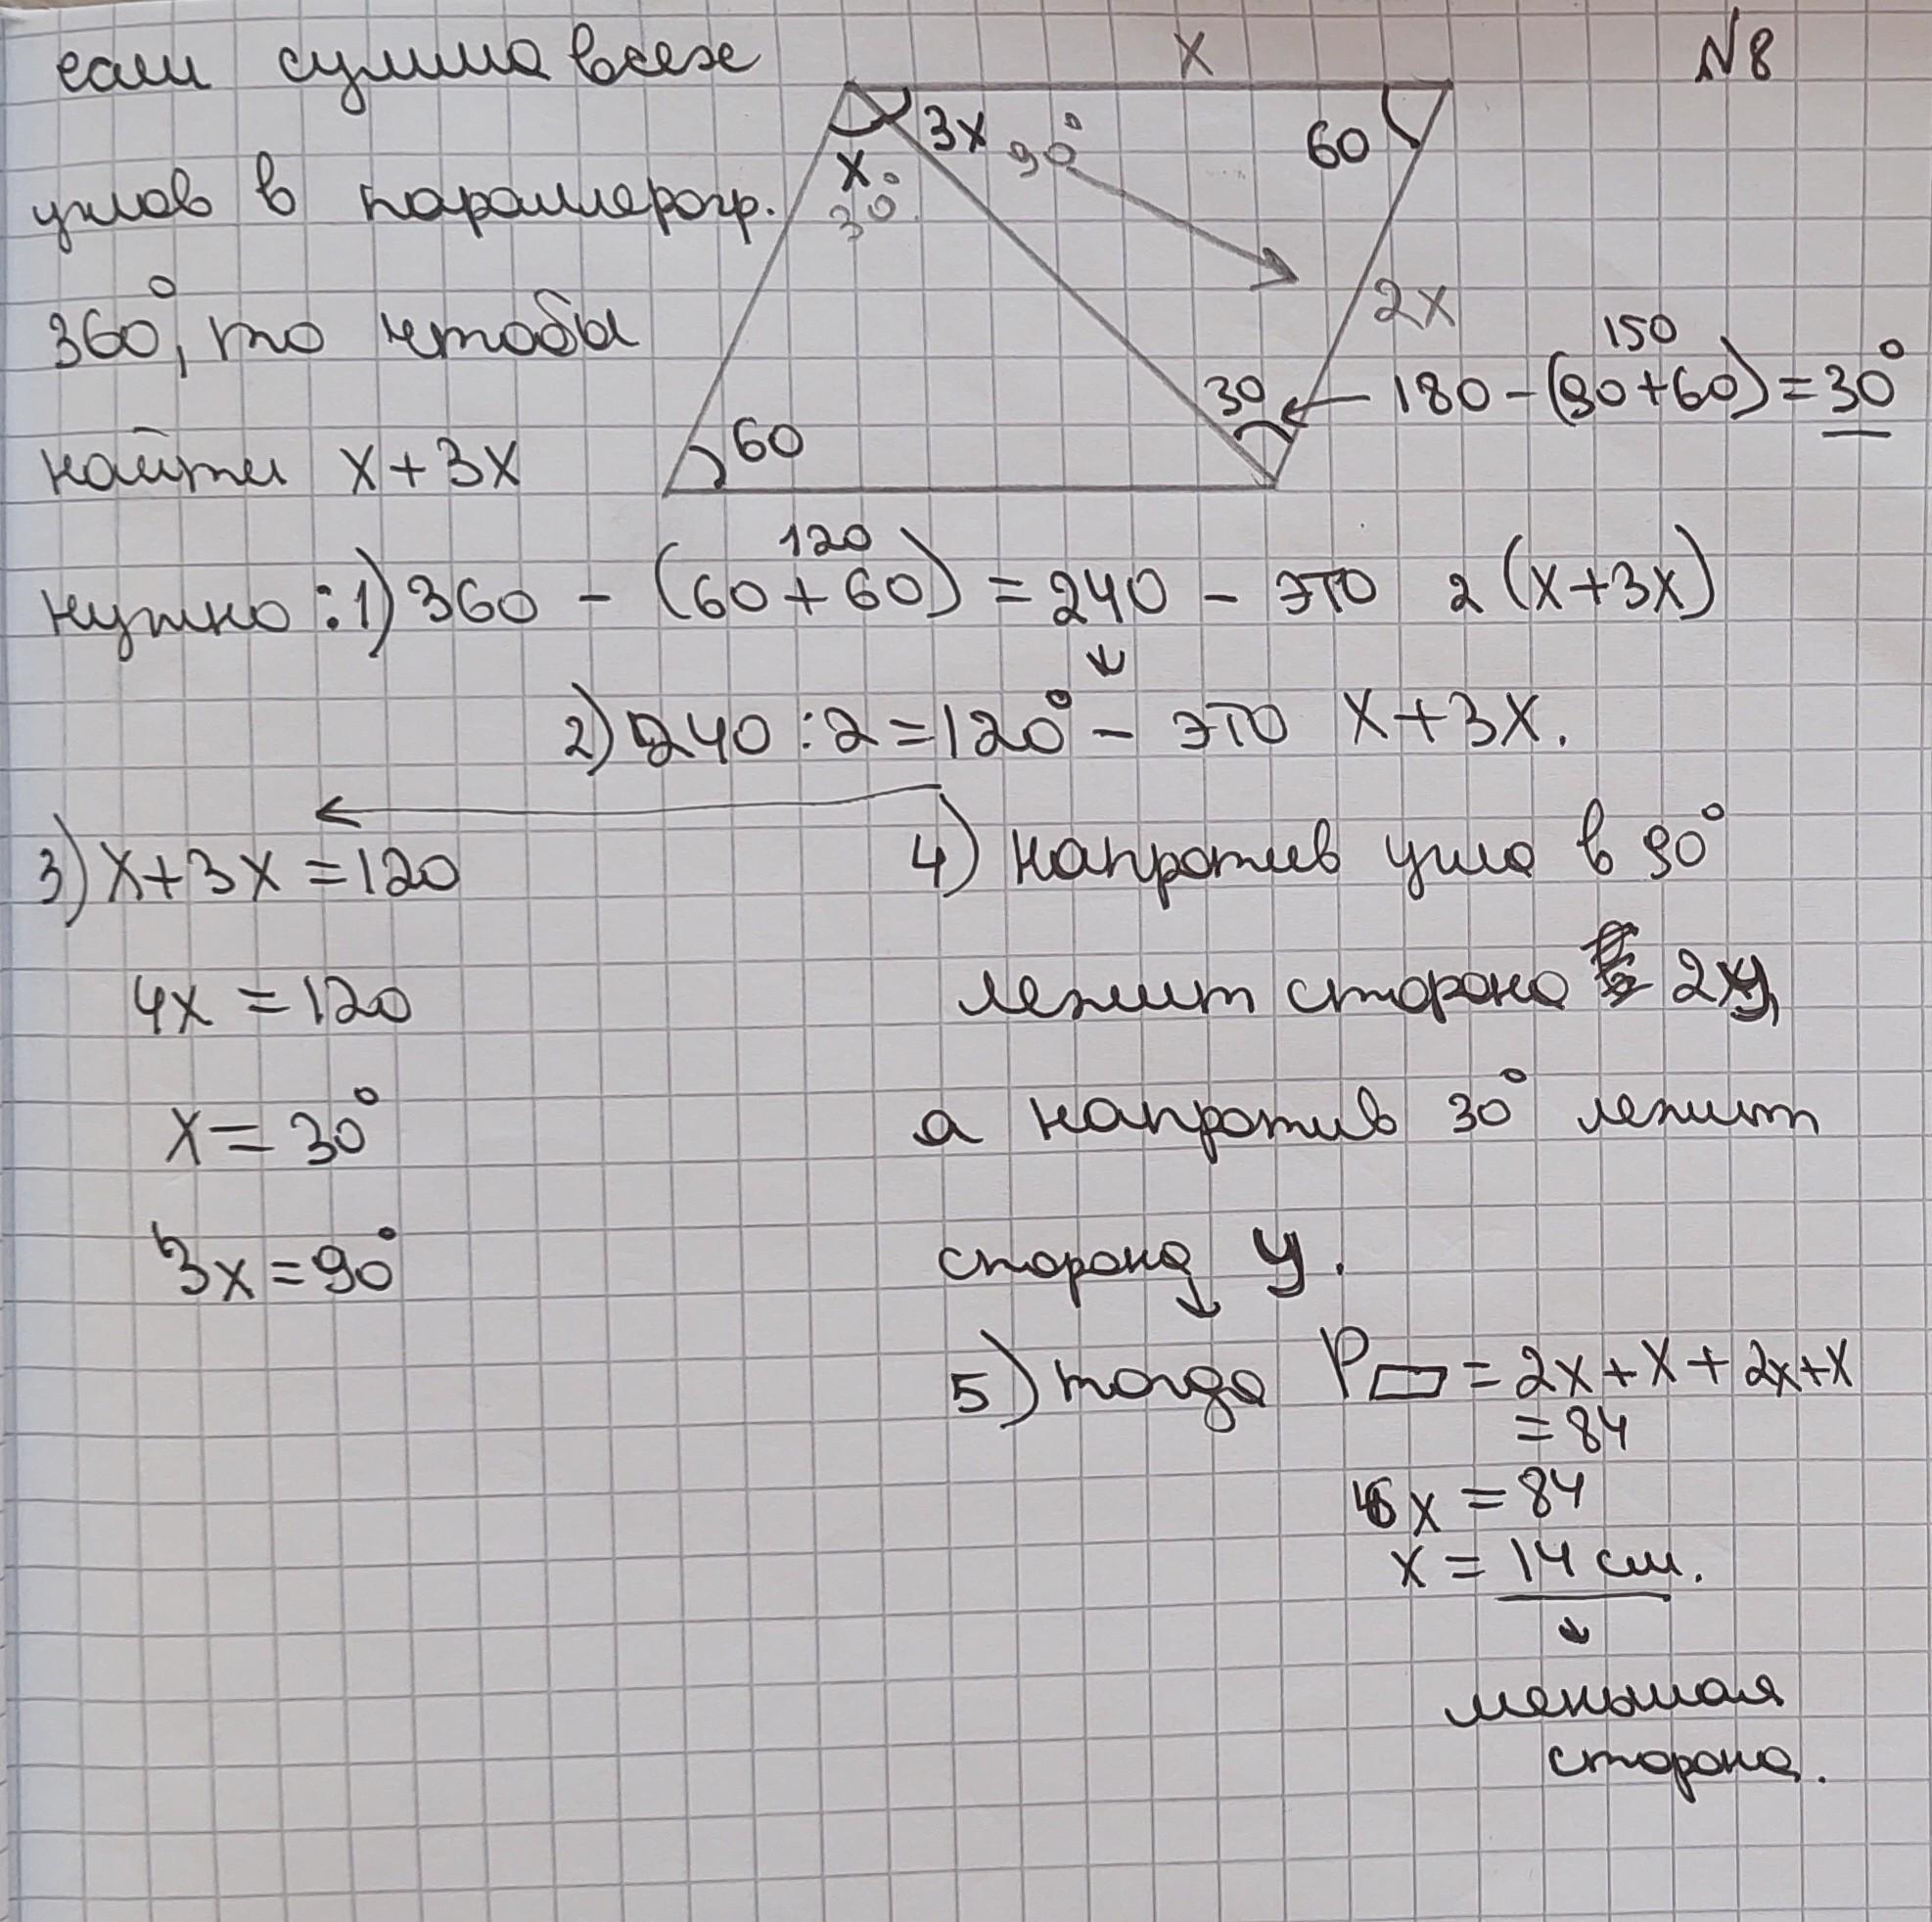 №8
если сумма всех
углов в параллерогр.
360°, то чтобы
найти x+3x
x
3x 90°
x
30°
60
2x
150
30 ← 180-(90+60)=30°
60
120
нужно: 1) 360 - (60+60) = 240 - это 2(x+3x)
2) 240:2=120° - это x+3x.
3) x+3x=120
4x=120
x=30°
3x=90°
4) напротив угла в 90°
лежит сторона 2y,
а напротив 30° лежит
сторона y.
5) тогда P▱=2x+x+2x+x
=84
6x=84
x=14 см.
меньшая
сторона.